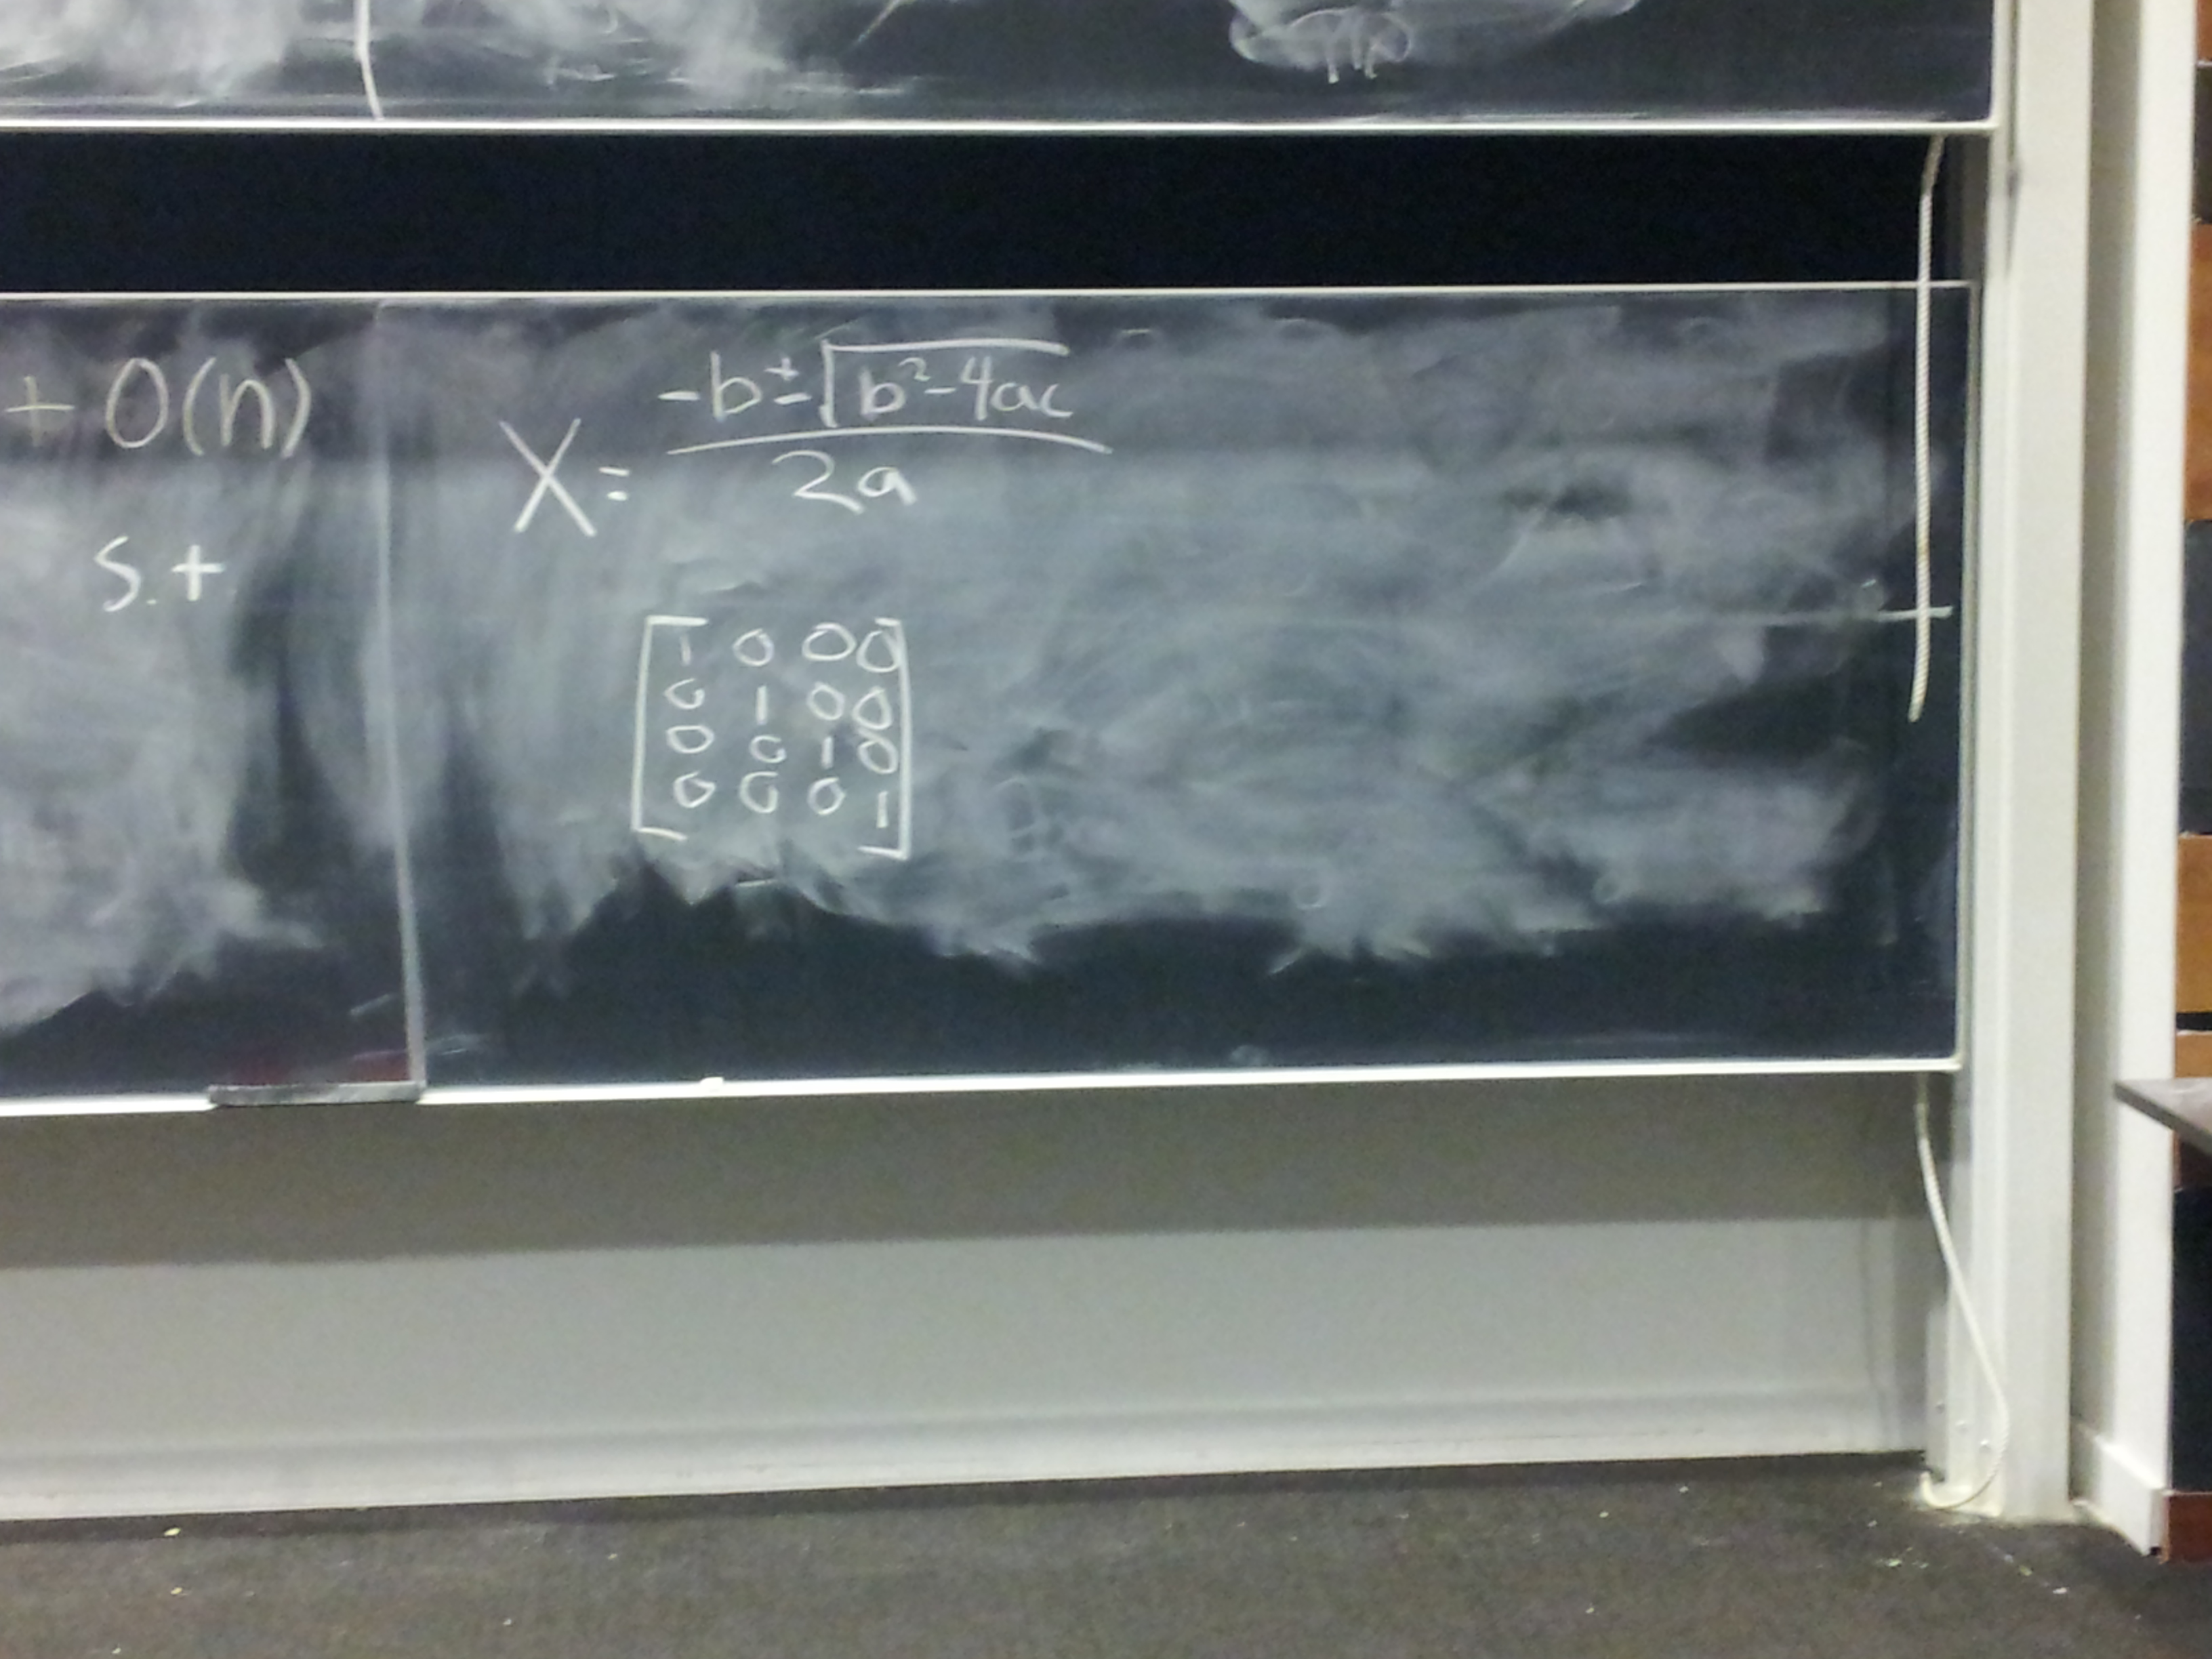 + O(n)
s.t
X = -b ± √(b² - 4ac)
2a
1 0 0 0
0 1 0 0
0 0 1 0
0 0 0 1